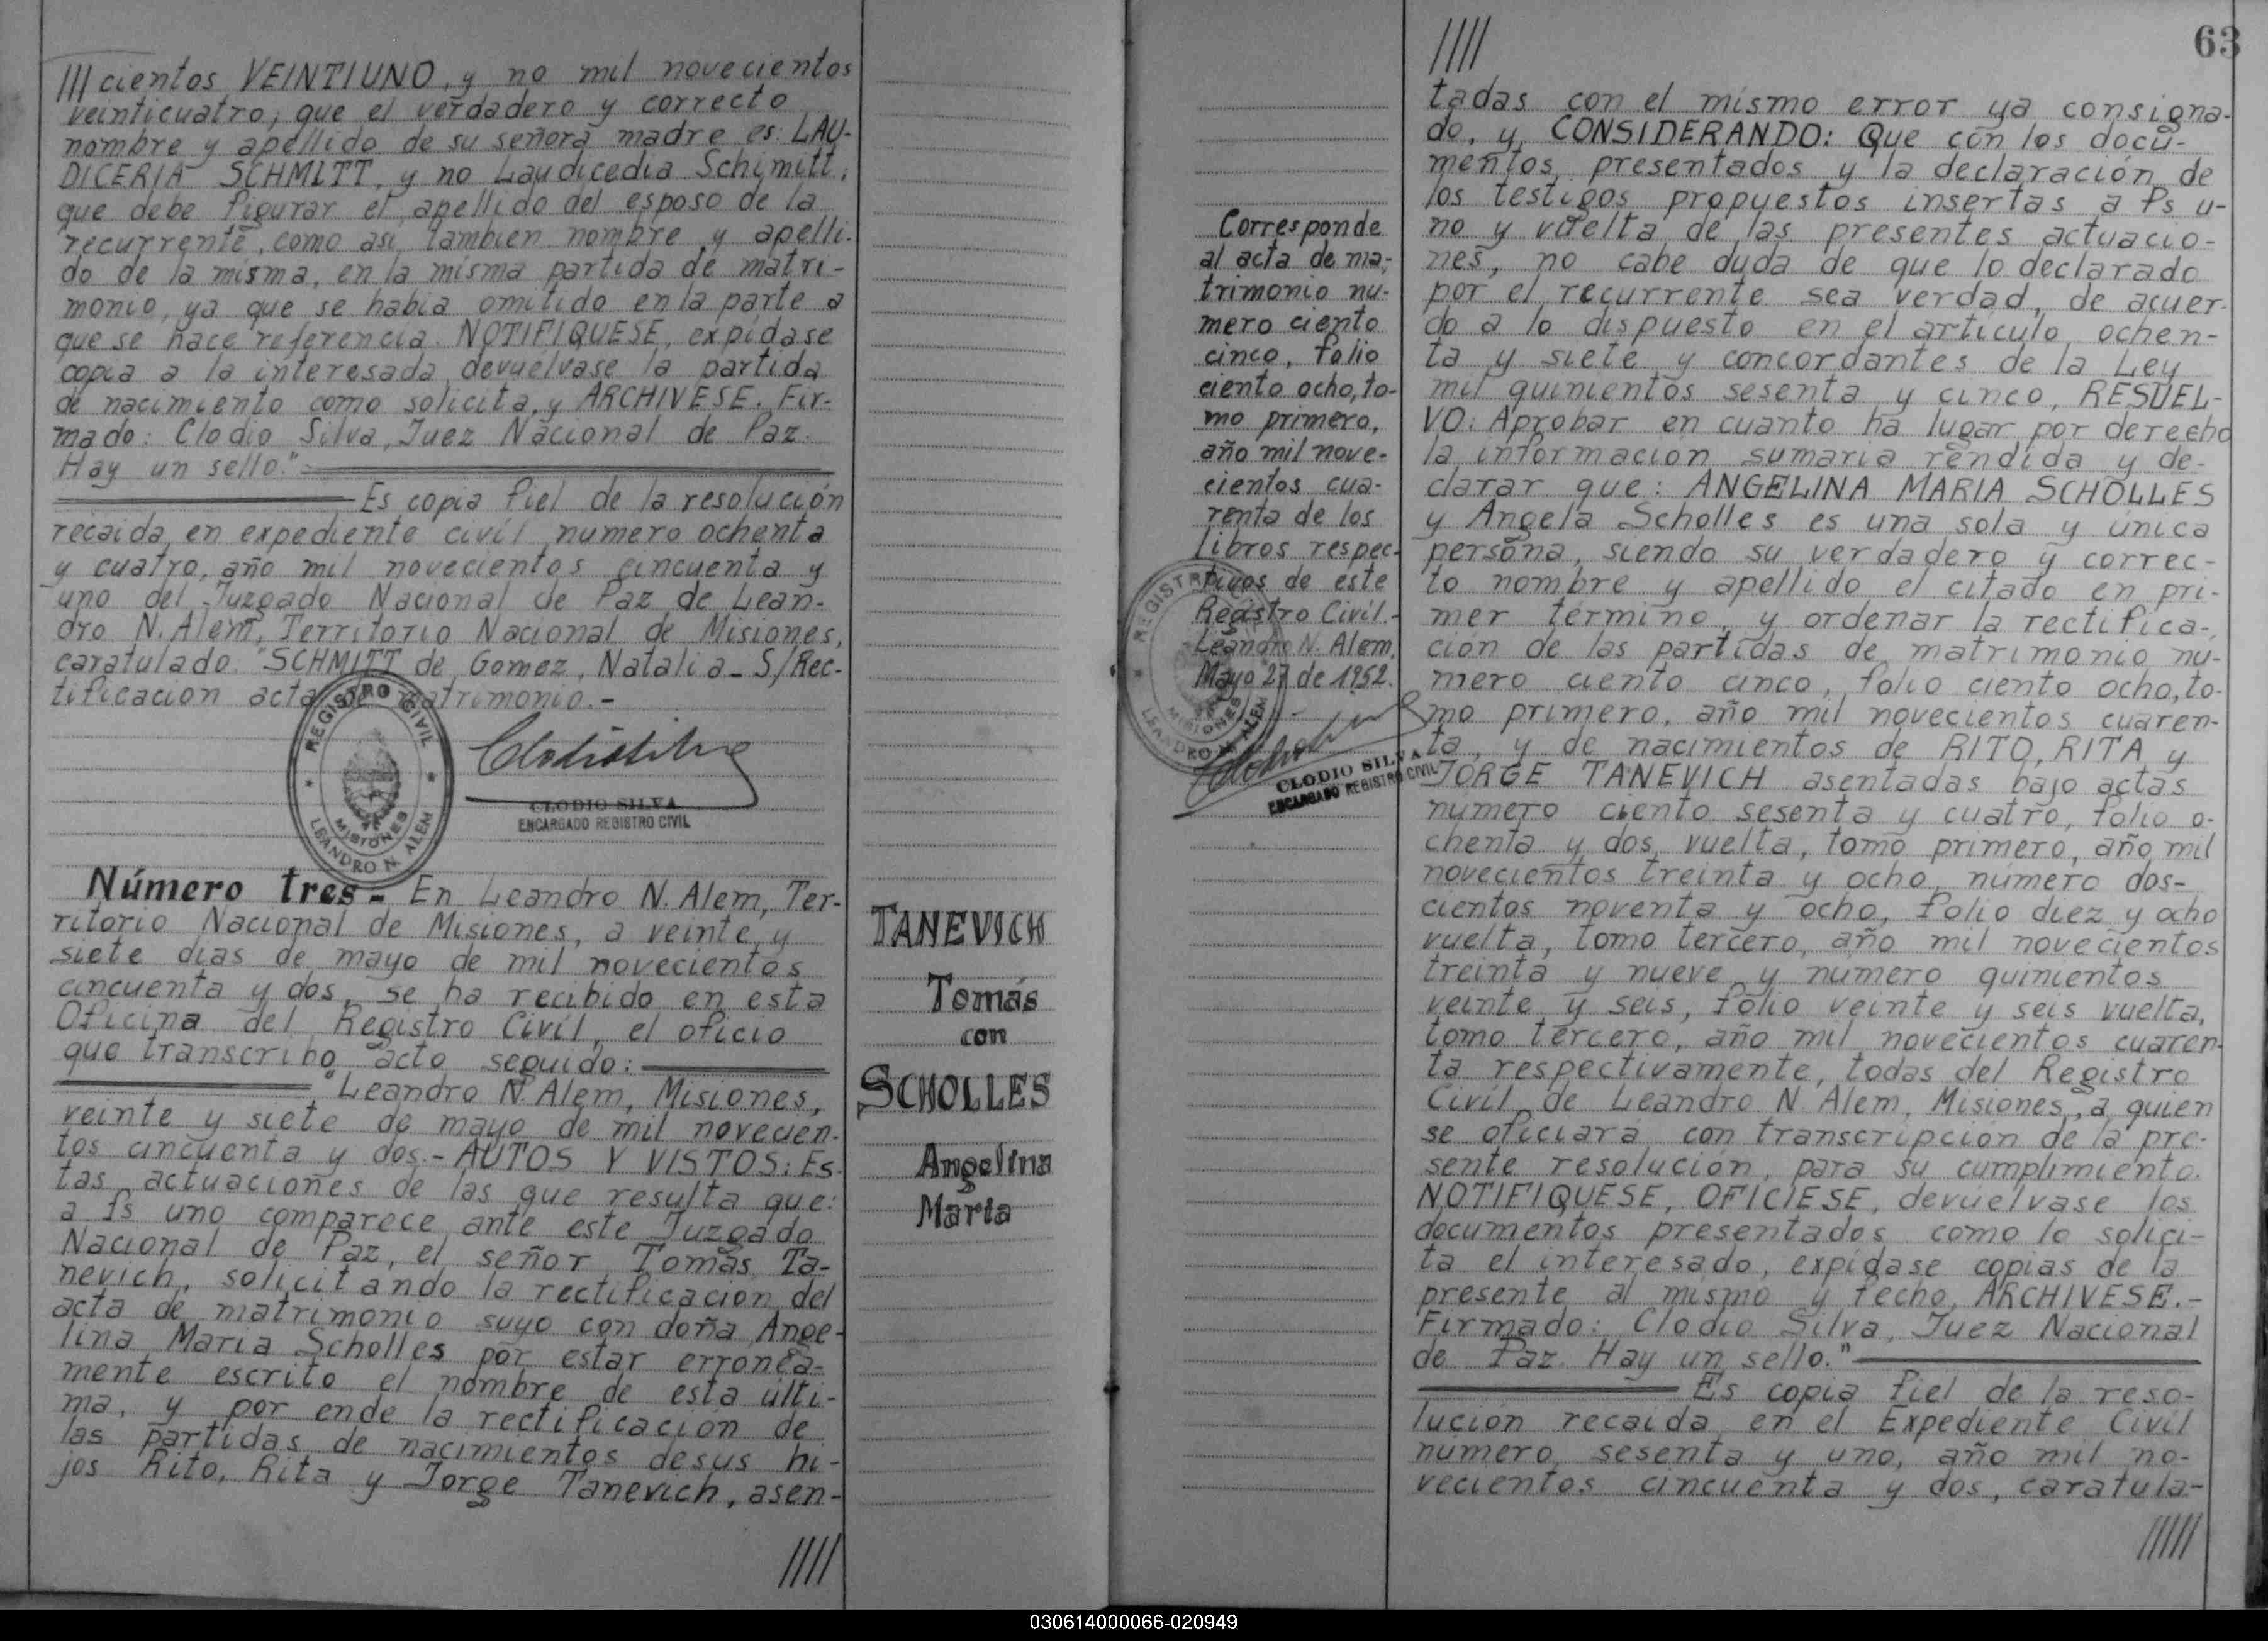 /// cientos VEINTIUNO, y no mil novecientos
veinticuatro; que el verdadero y correcto
nombre y apellido de su señora madre es: LAU-
DICERIA SCHMITT, y no Laudicedia Schimitt;
que debe figurar el apellido del esposo de la
recurrente, como asi tambien nombre y apelli-
do de la misma, en la misma partida de matri-
monio, ya que se habia omitido en la parte a
que se hace referencia. NOTIFIQUESE, expidase
copia a la interesada, devuélvase la partida
de nacimiento como solicita, y ARCHIVESE. Fir-
mado: Clodio Silva, Juez Nacional de Paz.
Hay un sello."
Es copia fiel de la resolución
recaida en expediente civil numero ochenta
y cuatro, año mil novecientos cincuenta y
uno del Juzgado Nacional de Paz de Lean-
dro N. Alem, Territorio Nacional de Misiones,
caratulado: "SCHMITT de Gomez, Natalia - S/Rec-
tificacion acta de matrimonio.-
REGISTRO CIVIL
MISIONES
LEANDRO N. ALEM
Clodio Silva
CLODIO SILVA
ENCARGADO REGISTRO CIVIL
Número tres - En Leandro N. Alem, Ter-
ritorio Nacional de Misiones, a veinte y
siete dias de mayo de mil novecientos
cincuenta y dos, se ha recibido en esta
Oficina del Registro Civil, el oficio
que transcribo acto seguido:
"Leandro N. Alem, Misiones,
veinte y siete de mayo de mil novecien-
tos cincuenta y dos.- AUTOS Y VISTOS: Es-
tas actuaciones de las que resulta que:
a fs uno comparece ante este Juzgado
Nacional de Paz, el señor Tomás Ta-
nevich, solicitando la rectificacion del
acta de matrimonio suyo con doña Ange-
lina Maria Scholles por estar erronea-
mente escrito el nombre de esta últi-
ma, y por ende la rectificación de
las partidas de nacimientos desus hi-
jos Rito, Rita y Jorge Tanevich, asen-
////
TANEVICH
Tomás
con
SCHOLLES
Angelina
Maria
63
Corresponde
al acta de ma-
trimonio nu-
mero ciento
cinco, folio
ciento ocho, to-
mo primero,
año mil nove-
cientos cua-
renta de los
Libros respec-
tivos de este
Registro Civil.-
Leandro N. Alem,
Mayo 27 de 1952.
REGISTRO
MISIONES
LEANDRO N. ALEM
CLODIO SILVA
ENCARGADO REGISTRO CIVIL
////
tadas con el mismo error ya consigna-
do, y, CONSIDERANDO: Que con los docu-
mentos presentados y la declaración de
los testigos propuestos insertas a fs u-
no y vuelta de las presentes actuacio-
nes, no cabe duda de que lo declarado
por el recurrente sea verdad, de acuer-
do a lo dispuesto en el articulo ochen-
ta y siete y concordantes de la Ley
mil quinientos sesenta y cinco, RESUEL-
VO: Aprobar en cuanto ha lugar por derecho
la informacion sumaria rendida y de-
clarar que: ANGELINA MARIA SCHOLLES
y Angela Scholles es una sola y única
persona, siendo su verdadero y correc-
to nombre y apellido el citado en pri-
mer termino, y ordenar la rectifica-
ción de las partidas de matrimonio nu-
mero ciento cinco, folio ciento ocho, to-
mo primero, año mil novecientos cuaren-
ta, y de nacimientos de RITO, RITA y
JORGE TANEVICH asentadas bajo actas
numero ciento sesenta y cuatro, folio o-
chenta y dos vuelta, tomo primero, año mil
novecientos treinta y ocho, número dos-
cientos noventa y ocho, folio diez y ocho
vuelta, tomo tercero, año mil novecientos
treinta y nueve y numero quinientos
veinte y seis, folio veinte y seis vuelta,
tomo tercero, año mil novecientos cuaren-
ta respectivamente, todas del Registro
Civil de Leandro N. Alem, Misiones, a quien
se oficiará con transcripción de la pre-
sente resolución, para su cumplimiento.
NOTIFIQUESE, OFICIESE, devuélvase los
documentos presentados como lo solici-
ta el interesado, expidase copias de la
presente al mismo y fecho, ARCHIVESE.-
Firmado: Clodio Silva, Juez Nacional
de Paz. Hay un sello."
Es copia fiel de la reso-
lución recaida en el Expediente Civil
numero sesenta y uno, año mil no-
vecientos cincuenta y dos, caratula-
/////
030614000066-020949